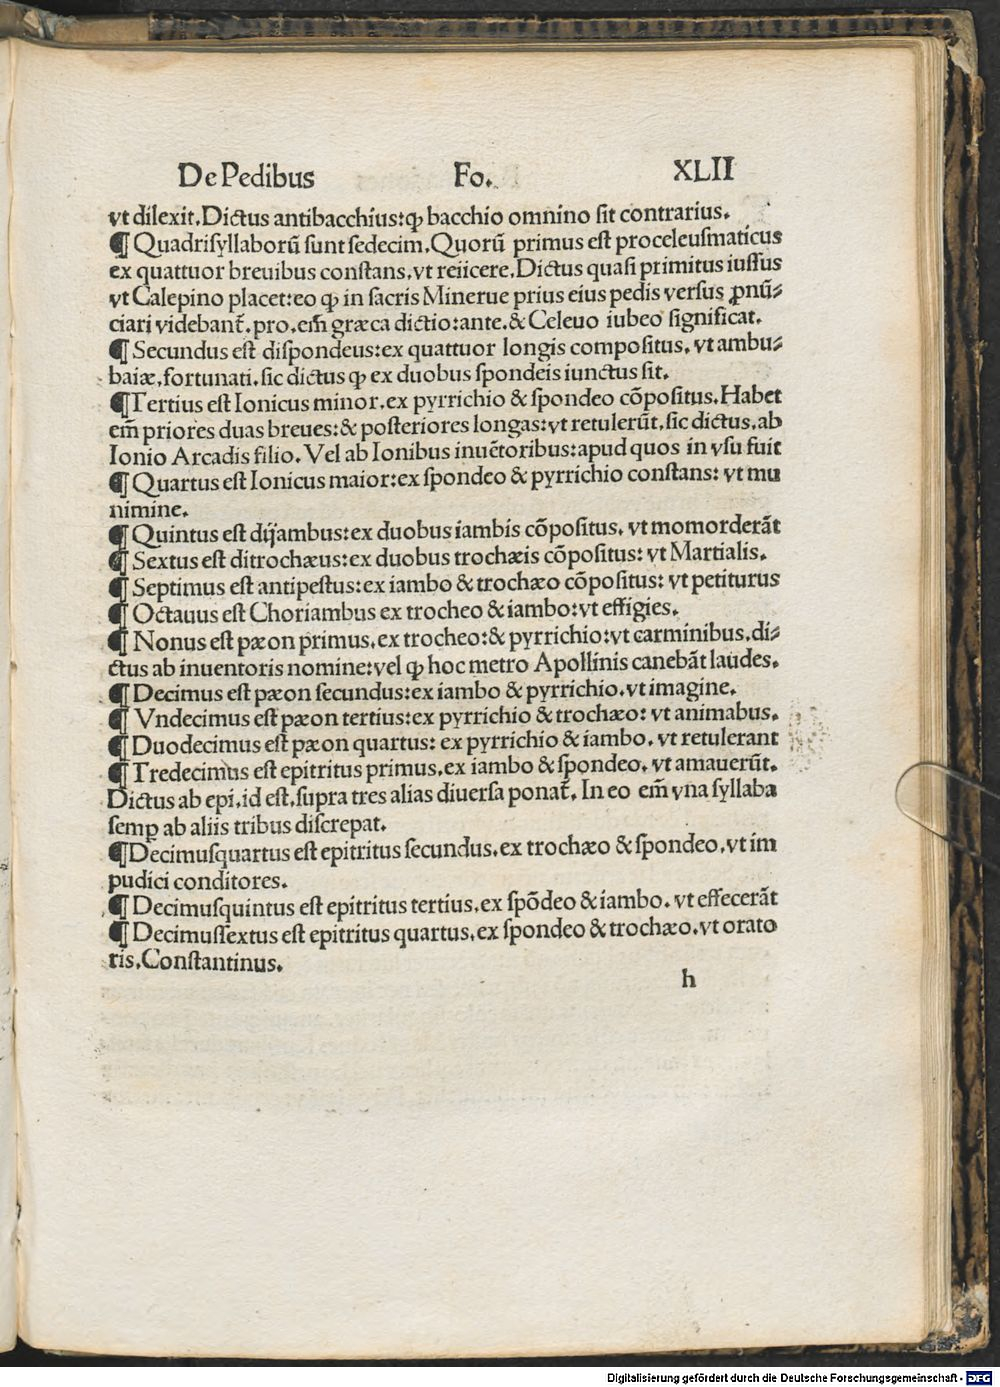 De Pedibus Fo. XLII
vt dilexit. Dictus antibacchius: ꝙ bacchio omnino sit contrarius.
¶ Quadrisyllaborū sunt sedecim. Quorū primus est proceleusmaticus
ex quattuor breuibus constans, vt reiicere. Dictus quasi primitus iussus
vt Calepino placet: eo ꝙ in sacris Minerue prius eius pedis versus ꝓnū⸗
ciari videbant̄. pro. em̄ græca dictio: ante. & Celeuo iubeo significat.
¶ Secundus est dispondeus: ex quattuor longis compositus. vt ambu⸗
baiæ, fortunati. sic dictus ꝙ ex duobus spondeis iunctus sit.
¶ Tertius est Ionicus minor. ex pyrrichio & spondeo cōpositus. Habet
em̄ priores duas breues: & posteriores longas: vt retulerūt. sic dictus. ab
Ionio Arcadis filio. Vel ab Ionibus inuētoribus: apud quos in vsu fuit
¶ Quartus est Ionicus maior: ex spondeo & pyrrichio constans: vt mu
nimine.
¶ Quintus est dijambus: ex duobus iambis cōpositus. vt momorderāt
¶ Sextus est ditrochæus: ex duobus trochæis cōpositus: vt Martialis.
¶ Septimus est antipestus: ex iambo & trochæo cōpositus: vt petiturus
¶ Octauus est Choriambus ex trocheo & iambo: vt effigies.
¶ Nonus est pæon primus. ex trocheo: & pyrrichio: vt carminibus. di⸗
ctus ab inuentoris nomine: vel ꝙ hoc metro Apollinis canebāt laudes.
¶ Decimus est pæon secundus: ex iambo & pyrrichio. vt imagine.
¶ Vndecimus est pæon tertius: ex pyrrichio & trochæo: vt animabus.
¶ Duodecimus est pæon quartus: ex pyrrichio & iambo. vt retulerant
¶ Tredecimus est epitritus primus. ex iambo & spondeo. vt amauerūt.
Dictus ab epi. id est. supra tres alias diuersa ponat̄. In eo em̄ vna syllaba
semꝑ ab aliis tribus discrepat.
¶ Decimusquartus est epitritus secundus. ex trochæo & spondeo. vt im
pudici conditores.
¶ Decimusquintus est epitritus tertius. ex spōdeo & iambo. vt effecerāt
¶ Decimussextus est epitritus quartus. ex spondeo & trochæo. vt orato
ris. Constantinus.
h
Digitalisierung gefördert durch die Deutsche Forschungsgemeinschaft - DFG